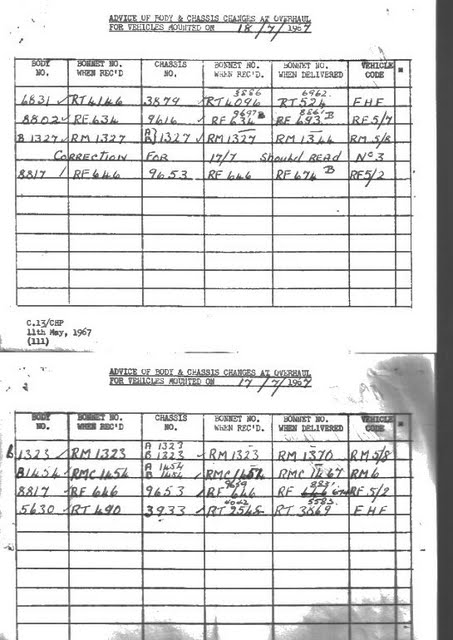 ADVICE OF BODY & CHASSIS CHANGES AT OVERHAUL
FOR VEHICLES MOUNTED ON 18/7/1967
BODY NO. BONNET NO. WHEN REC'D CHASSIS NO. BONNET NO. WHEN REC'D. BONNET NO. WHEN DELIVERED VEHICLE CODE
3886 6962
6831 RT4146 3879 RT4096 RT524 FHF
9697 B 8867 B
8802 RF634 9616 RF634 RF693 RF5/7
B1327 RM1327 A B 1327 RM1327 RM1344 RM5/8
CORRECTION FOR 17/7 Should READ No 3
8817 RF646 9653 RF646 RF674 B RF5/2
C.13/CHP
11th May, 1967
(111)
ADVICE OF BODY & CHASSIS CHANGES AT OVERHAUL
FOR VEHICLES MOUNTED ON 17/7/1967
BODY NO. BONNET NO. WHEN REC'D CHASSIS NO. BONNET NO. WHEN REC'D. BONNET NO. WHEN DELIVERED VEHICLE CODE
A 1323
B1323 RM1323 B 1323 RM1323 RM1370 RM5/8
A 1454
B1454 RMC1454 B 1454 RMC1454 RMC1467 RM6
9639 8831
8817 RF646 9653 RF646 RF RF5/2
4062 5583
5630 RT490 3933 RT2548 RT3869 FHF